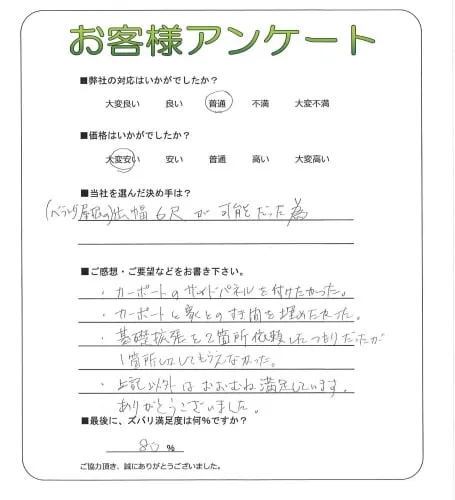 お客様アンケート
■弊社の対応はいかがでしたか？
大変良い 良い 普通 不満 大変不満
■価格はいかがでしたか？
大変安い 安い 普通 高い 大変高い
■当社を選んだ決め手は？
(ベランダ屋根の)広幅6尺が可能だった為
■ご感想・ご要望などをお書き下さい。
・カーポートのサイドパネルを付けたかった。
・カーポートと家とのすき間を埋めたかった。
・基礎拡張を2箇所依頼したつもりだったが
1箇所しかしてもらえなかった。
・上記以外はおおむね満足しています。
ありがとうございました。
■最後に、ズバリ満足度は何%ですか？
80 %
ご協力頂き、誠にありがとうございました。